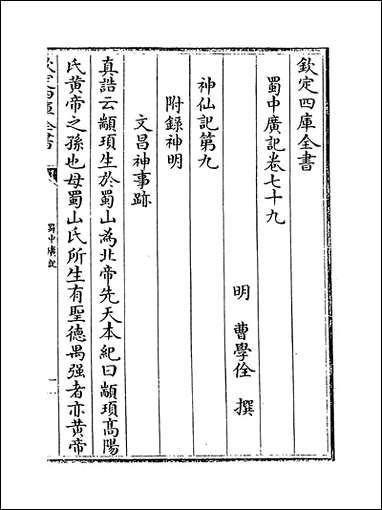 欽定四庫全書
蜀中廣記卷七十九
明 曹學佺 撰
神仙記第九
附錄神明
文昌神事跡
真誥云顓頊生於蜀山為北帝先天本紀曰顓頊髙陽
氏黄帝之孫也母蜀山氏所生有聖德禺强者亦黄帝
欽定四庫全書
蜀中廣記
一